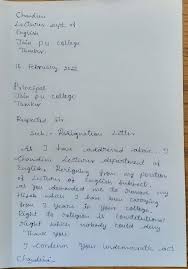 Chandini
Lecturer dept of
English
Jain p u college
Tumkur
16 February 2022
Principal
Jain p u college
Tumkur
Respected Sir
Sub:- Resignation Letter
As I have addressed above I
Chandini Lecturer department of
English, Resigning from my position
of Lecturer of English Subject.
as you demanded me to remove my
Hijab which I have been carrying
from 3 years in your college.
Right to religion is constitutional
right which nobody could deny
Thank you
I condemn your undemocratic act
Chandini